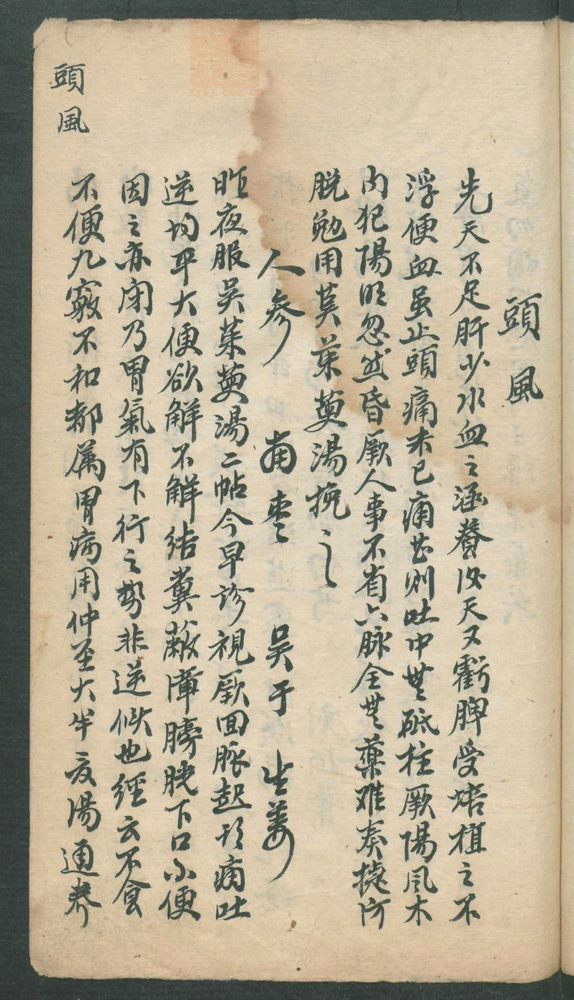 頭風
頭風
先天不足肝少水血之涵養後天又虧脾受焙植之不
浮便血虽止頭痛未已痛甚則吐中無砥柱厥陽風木
内犯陽明忽然昏厥人事不省六脉全無藥难奏捷
脱勉用吴茱萸湯挽之
人參 南枣 吴于 生姜
昨夜服吴茱萸湯二帖今早診視厥回脉起頭痛吐
逆均平大便欲解不解結糞蔽障膀胱下口小便
因之亦闭乃胃氣有下行之势非逆候也經云不食
不便九竅不和都属胃病用仲聖大半夏湯通養